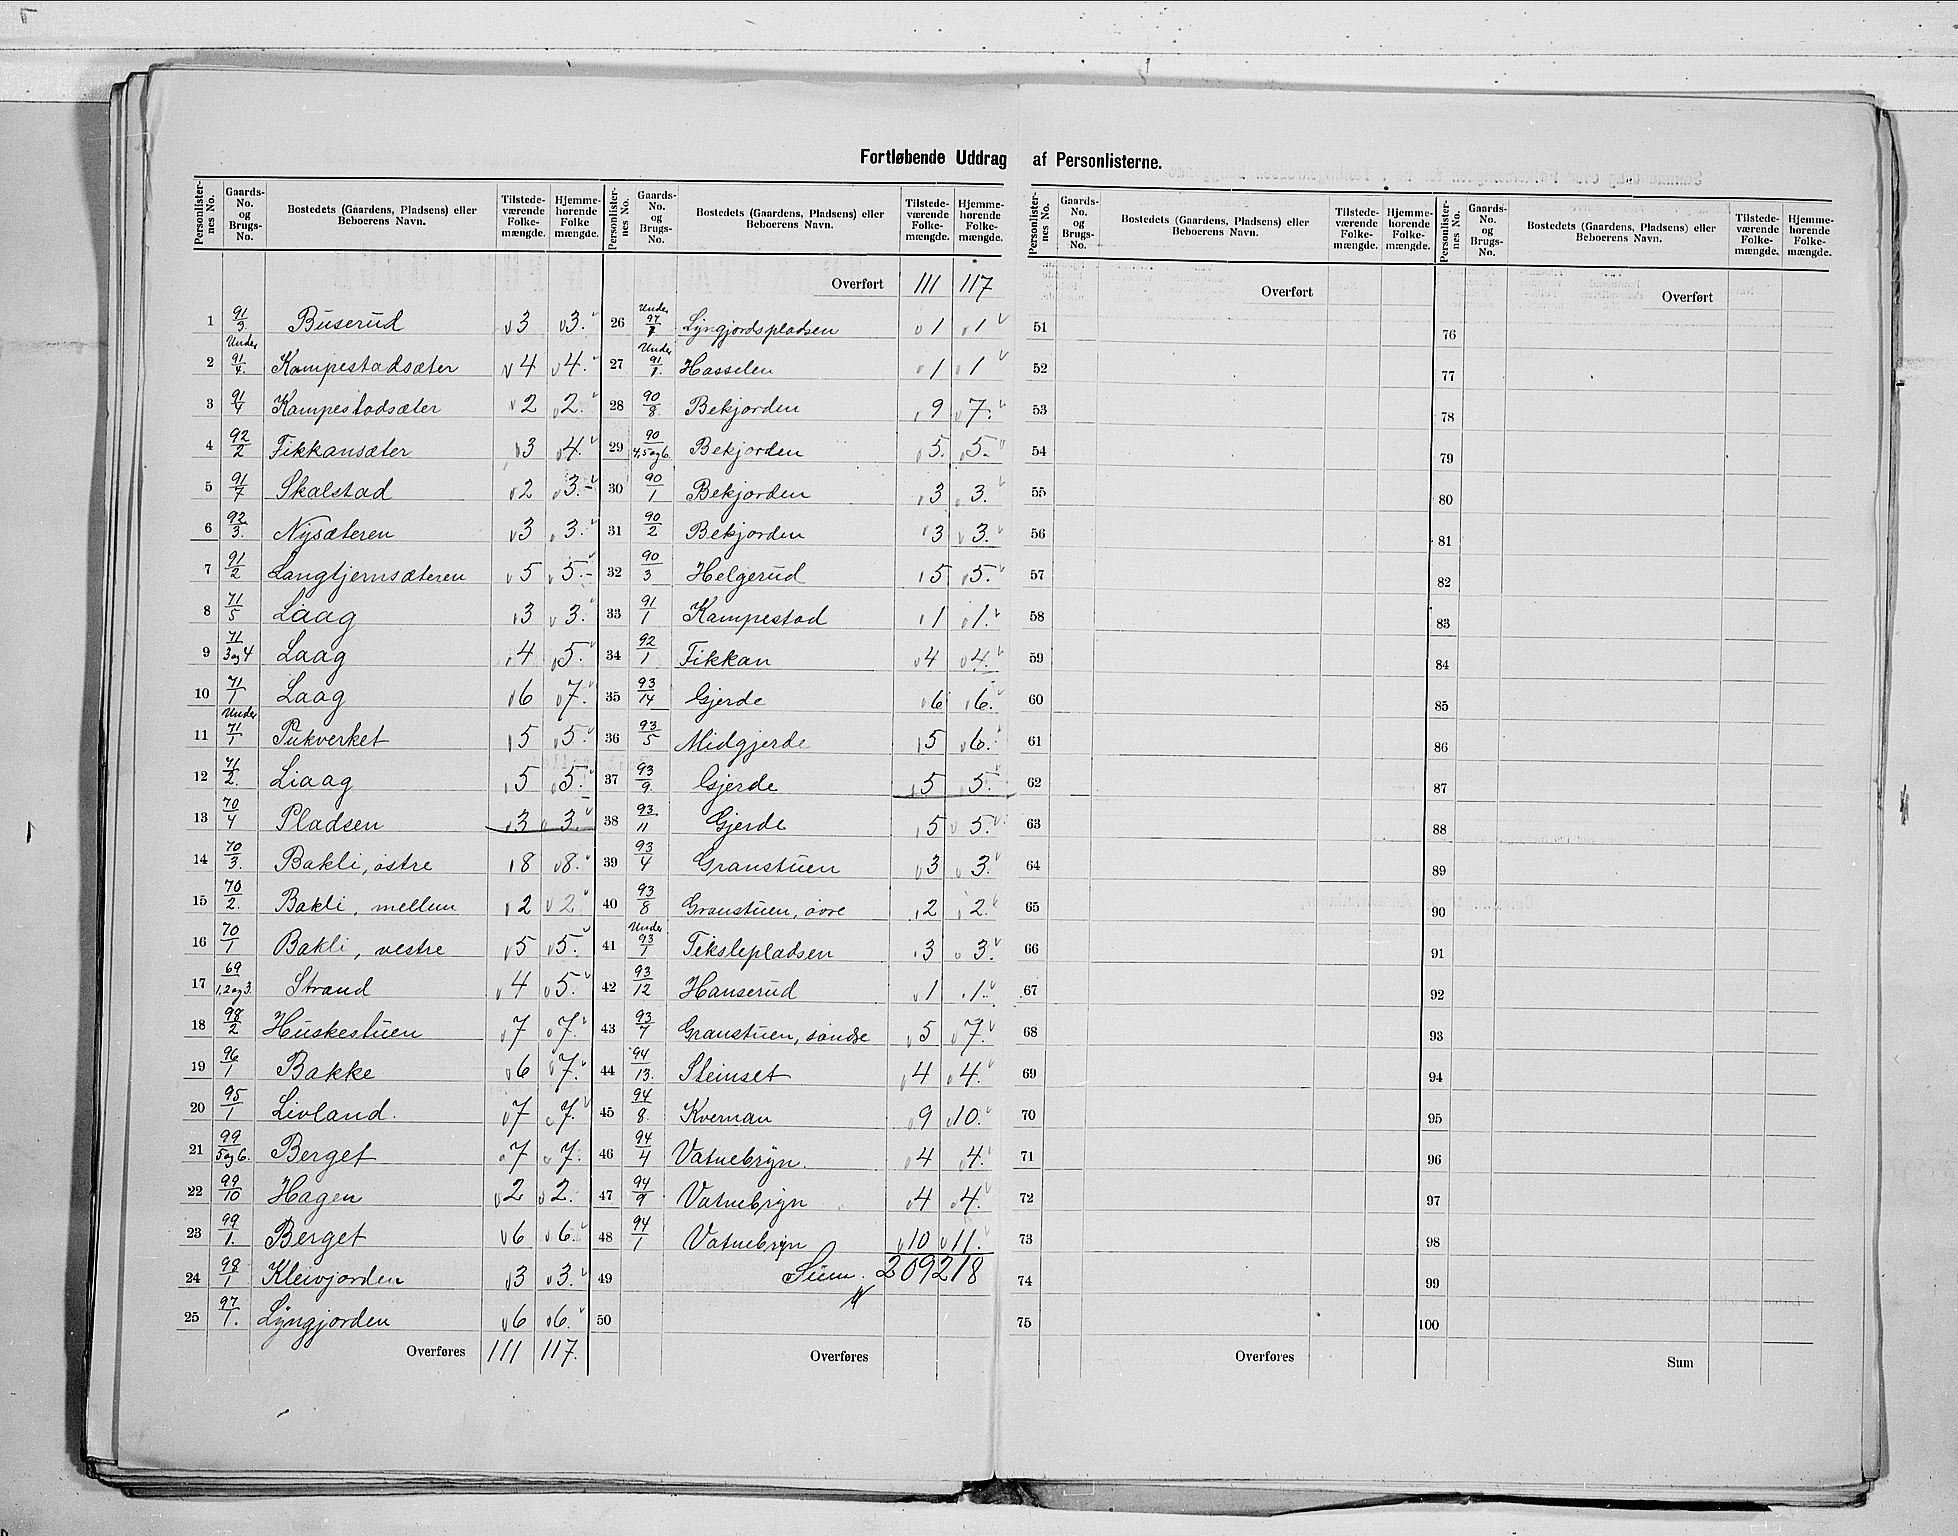 Fortløbende Uddrag af Personlisterne.
Personlister-nes No. | Gaards-No. og Brugs-No. | Bostedets (Gaardens, Pladsens) eller Beboerens Navn. | Tilstede-værende Folke-mængde. | Hjemme-hørende Folke-mængde.
1 | 91/3. | Buserud | 3 | 3.
2 | Under 91/4. | Kampestadsæter | 4 | 4.
3 | 91/4 | Kampestadsæter | 2 | 2.
4 | 92/2 | Fikkansæter | 3 | 4.
5 | 91/7 | Skalstad | 2 | 3.
6 | 92/3. | Nysæteren | 3 | 3.
7 | 91/2 | Langtjernsæteren | 5 | 5.
8 | 71/5 | Laag | 3 | 3.
9 | 71/3 og 4 | Laag | 4 | 5.
10 | 71/1 | Laag | 6 | 7.
11 | Under 71/1 | Pukverket | 5 | 5.
12 | 71/2. | Laag | 5 | 5.
13 | 70/4 | Pladsen | 3 | 3.
14 | 70/3. | Bakli, østre | 8 | 8.
15 | 70/2. | Bakli, mellem | 2 | 2
16 | 70/1 | Bakli, vestre | 5 | 5.
17 | 69/1,2 og 3. | Strand | 4 | 5.
18 | 98/2 | Huskestuen | 7 | 7.
19 | 96/1 | Bakke | 6 | 7.
20 | 95/1 | Livland. | 7 | 7.
21 | 99/5 og 6. | Berget | 7 | 7.
22 | 99/10 | Hagen | 2 | 2.
23 | 99/1. | Berget | 6 | 6.
24 | 98/1 | Kleivjorden | 3 | 3.
25 | 97/1. | Lyngjorden | 6 | 6.
Overføres 111 117.
Personlister-nes No. | Gaards-No. og Brugs-No. | Bostedets (Gaardens, Pladsens) eller Beboerens Navn. | Tilstede-værende Folke-mængde. | Hjemme-hørende Folke-mængde.
Overført 111 117
26 | Under 97/1. | Lyngjordspladsen | 1 | 1
27 | Under 91/1. | Hasselen | 1 | 1
28 | 90/8. | Bekjorden | 9 | 7.
29 | 90/4,5 og 6. | Bekjorden | 5. | 5.
30 | 90/1 | Bekjorden | 3 | 3.
31 | 90/2 | Bekjorden | 3 | 3.
32 | 90/3 | Helgerud | 5 | 5.
33 | 91/1 | Kampestad | 1 | 1.
34 | 92/1 | Fikkan | 4 | 4.
35 | 93/14 | Gjerde | 6 | 6.
36 | 93/5 | Midgjerde | 5 | 6.
37 | 93/9. | Gjerde | 5 | 5.
38 | 93/11 | Gjerde | 5 | 5.
39 | 93/4 | Granstuen | 3 | 3.
40 | 93/8 | Granstuen, øvre | 2 | 2.
41 | Under 93/1 | Tekslepladsen | 3 | 3.
42 | 93/12 | Hanserud | 1 | 1.
43 | 93/7 | Granstuen, søndre | 5 | 7.
44 | 94/13. | Steinset | 4 | 4.
45 | 94/8. | Kvernan | 9 | 10.
46 | 94/4 | Vatnebryn. | 4 | 4.
47 | 94/9 | Vatnebryn | 4 | 4.
48 | 94/1 | Vatnebryn | 10 | 11.
49 | Sum. | 209 | 218
50
Overføres
Personlister-nes No. | Gaards-No. og Brugs-No. | Bostedets (Gaardens, Pladsens) eller Beboerens Navn. | Tilstede-værende Folke-mængde. | Hjemme-hørende Folke-mængde.
Overført
51
52
53
54
55
56
57
58
59
60
61
62
63
64
65
66
67
68
69
70
71
72
73
74
75
Overføres
Personlister-nes No. | Gaards-No. og Brugs-No. | Bostedets (Gaardens, Pladsens) eller Beboerens Navn. | Tilstede-værende Folke-mængde. | Hjemme-hørende Folke-mængde.
Overført
76
77
78
79
80
81
82
83
84
85
86
87
88
89
90
91
92
93
94
95
96
97
98
99
100
Sum